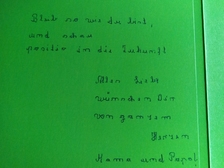 Bleib so wie du bist,
und schau
positiv in die Zukunft
Alles Gute
wünschen Dir
von ganzem
Herzen
Mama und Papa